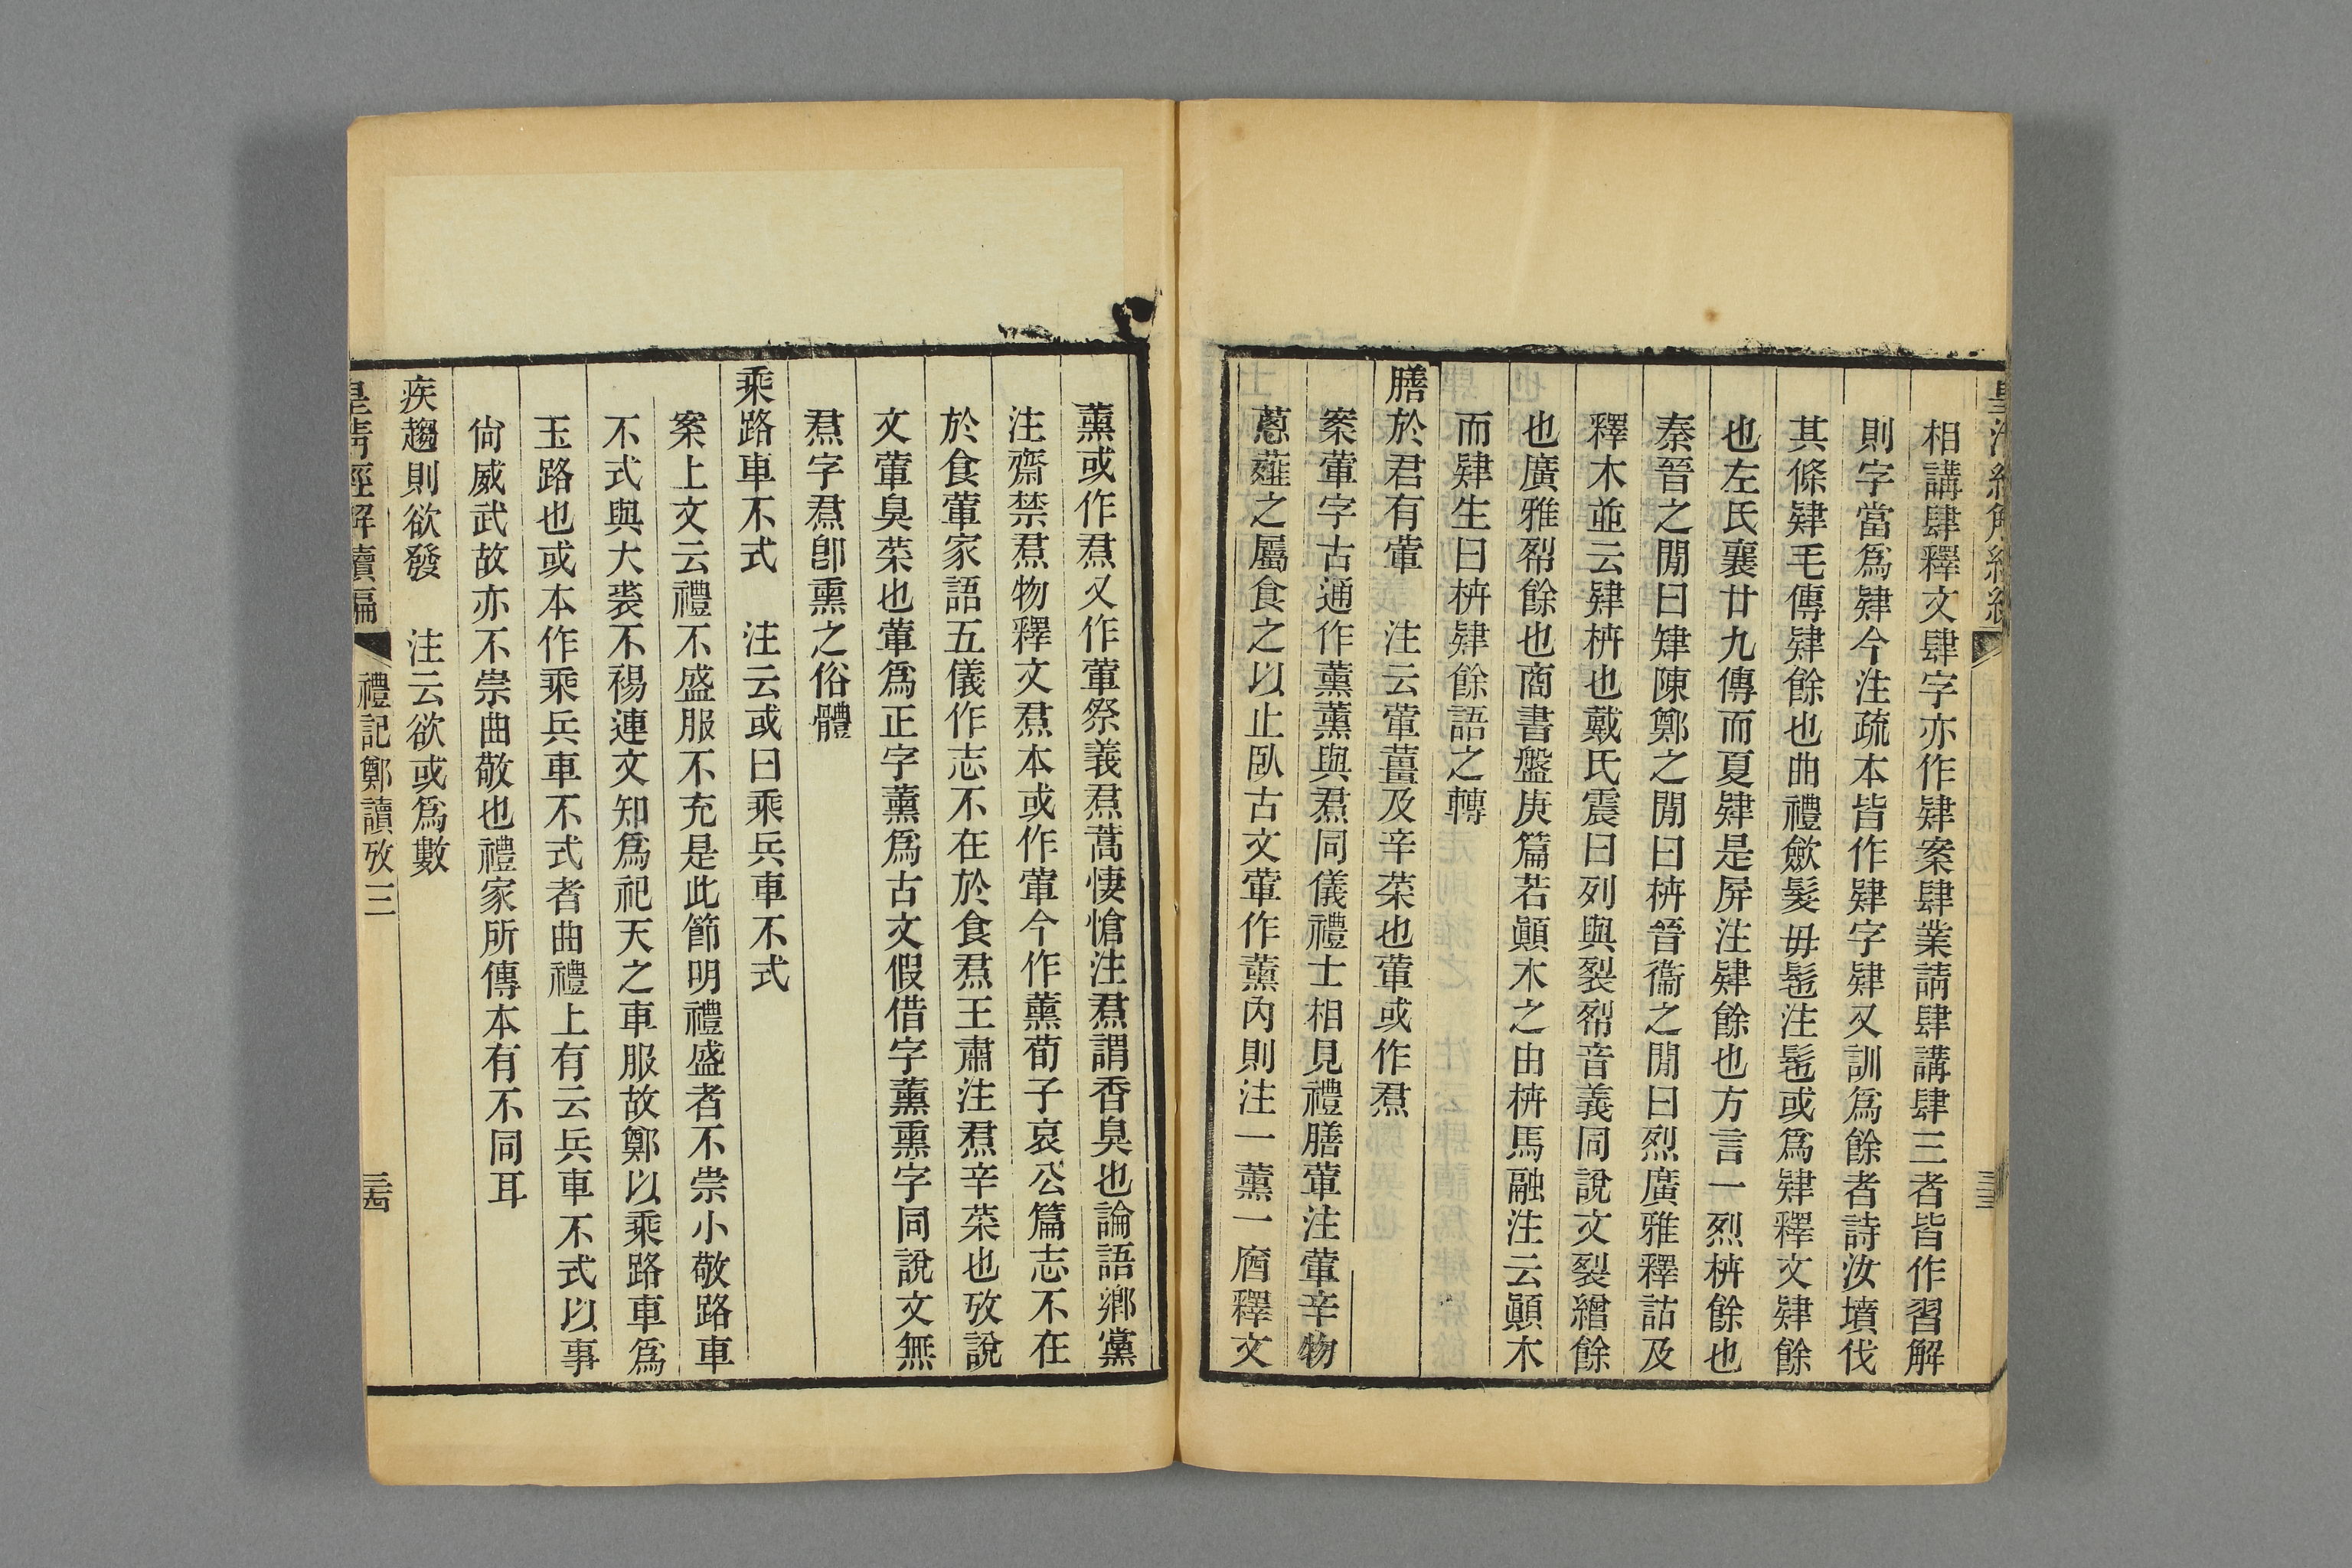 相講肆釋文肆字亦作肄案肆業請肆講肆三者皆作習解
則字當爲肄今注疏本皆作肄字肄又訓爲餘者詩汝墳伐
其條肄毛傳肄餘也曲禮歛髮毋髢注髢或爲肄釋文肄餘
也左氏襄廿九傳而夏肄是屏注肄餘也方言一烈枿餘也
秦晉之閒曰肄陳鄭之閒曰枿晉衞之閒曰烈廣雅釋詁及
釋木並云肄枿也戴氏震曰列與裂㡜音義同說文裂繒餘
也廣雅㡜餘也商書盤庚篇若顚木之由枿馬融注云顚木
而肄生曰枿肄餘語之轉
膳於君有葷　注云葷薑及辛菜也葷或作焄
案葷字古通作薰薰與焄同儀禮士相見禮膳葷注葷辛物
蔥薤之屬食之以止臥古文葷作薰內則注一薰一㾞釋文
薰或作焄又作葷祭義焄蒿悽愴注焄謂香臭也論語鄉黨
注齋禁焄物釋文焄本或作葷今作薰荀子哀公篇志不在
於食葷家語五儀作志不在於食焄王肅注焄辛菜也攷說
文葷臭菜也葷爲正字薰爲古文假借字薰熏字同說文無
焄字焄卽熏之俗體
乘路車不式　注云或曰乘兵車不式
案上文云禮不盛服不充是此節明禮盛者不崇小敬路車
不式與大裘不裼連文知爲祀天之車服故鄭以乘路車爲
玉路也或本作乘兵車不式者曲禮上有云兵車不式以事
尙威武故亦不崇曲敬也禮家所傳本有不同耳
疾趨則欲發　注云欲或爲數
皇清經解續編
禮記鄭讀攷三
三四